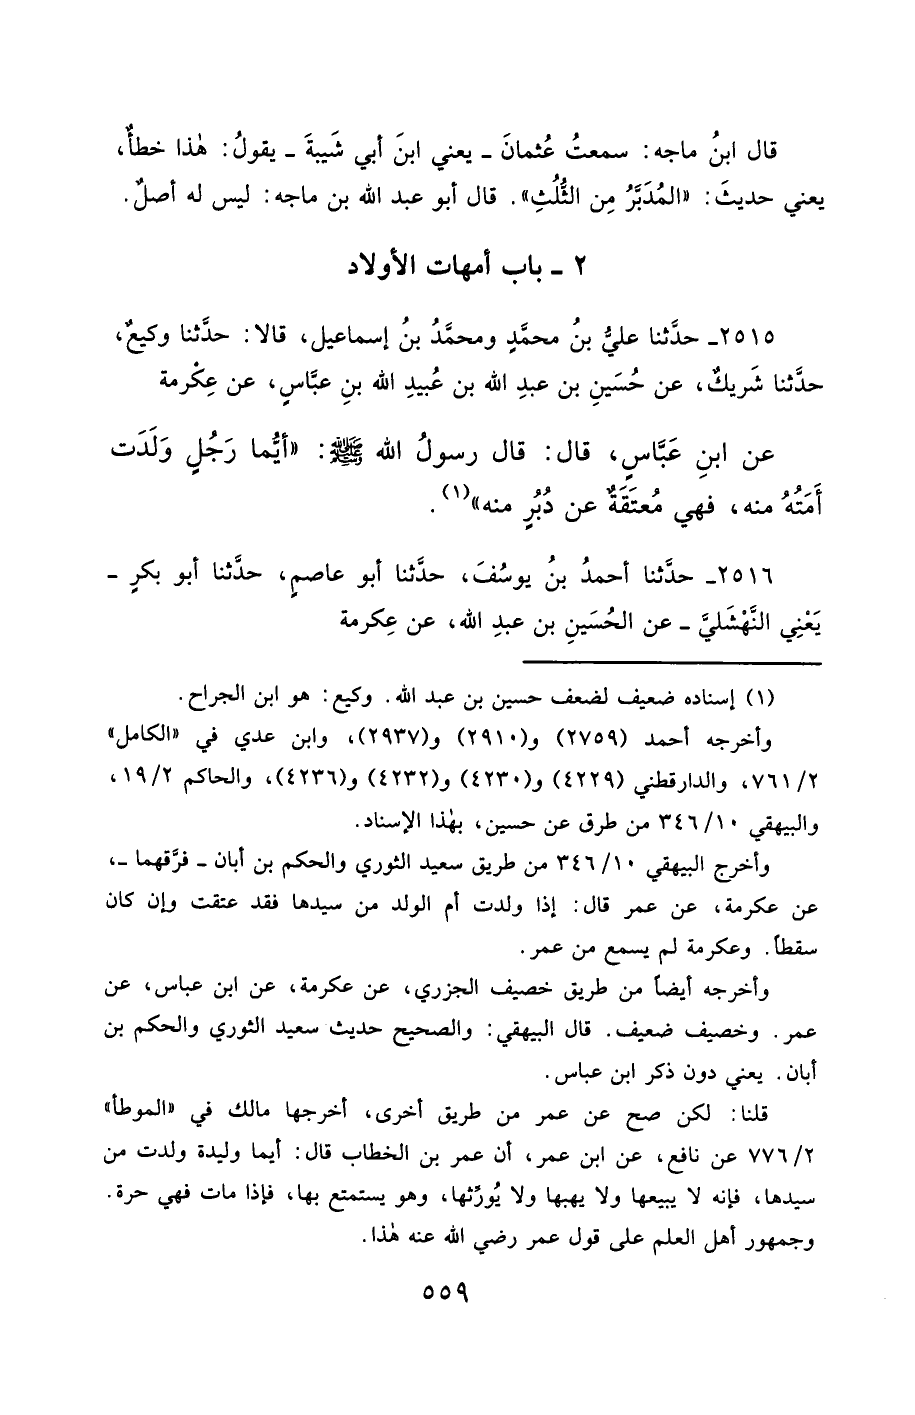 قال ابنُ ماجه: سمعتُ عُثمانَ ـ يعني ابنَ أبي شَيبةَ ـ يقولُ: هٰذا خطأٌ،
يعني حديثَ: «المُدَبَّرُ مِن الثُّلُثِ». قال أبو عبد الله بن ماجه: ليس له أصلٌ.
٢ ـ باب أمهات الأولاد
٢٥١٥ـ حدَّثنا عليُّ بنُ محمَّدٍ ومحمَّدُ بنُ إسماعيل، قالا: حدَّثنا وكيعٌ،
حدَّثنا شَريكٌ، عن حُسَينِ بن عبدِ الله بن عُبيدِ الله بنِ عبَّاسٍ، عن عِكْرمة
عن ابنِ عَبَّاسٍ، قال: قال رسولُ الله ﷺ: «أيُّما رَجُلٍ وَلَدَت
أَمَتُهُ منه، فهي مُعتَقَةٌ عن دُبُرٍ منه»(١).
٢٥١٦ـ حدَّثنا أحمدُ بنُ يوسُفَ، حدَّثنا أبو عاصمٍ، حدَّثنا أبو بكرٍ ـ
يَعْنِي النَّهْشَليَّ ـ عن الحُسَينِ بن عبدِ الله، عن عِكرمة
(١) إسناده ضعيف لضعف حسين بن عبد الله. وكيع: هو ابن الجراح.
وأخرجه أحمد (٢٧٥٩) و(٢٩١٠) و(٢٩٣٧)، وابن عدي في «الكامل»
٢/ ٧٦١، والدارقطني (٤٢٢٩) و(٤٢٣٠) و(٤٢٣٢) و(٤٢٣٦)، والحاكم ٢/ ١٩،
والبيهقي ١٠/ ٣٤٦ من طرق عن حسين، بهٰذا الإسناد.
وأخرج البيهقي ١٠/ ٣٤٦ من طريق سعيد الثوري والحكم بن أبان ـ فرَّقهما ـ،
عن عكرمة، عن عمر قال: إذا ولدت أم الولد من سيدها فقد عتقت وإن كان
سقطاً. وعكرمة لم يسمع من عمر.
وأخرجه أيضاً من طريق خصيف الجزري، عن عكرمة، عن ابن عباس، عن
عمر. وخصيف ضعيف. قال البيهقي: والصحيح حديث سعيد الثوري والحكم بن
أبان. يعني دون ذكر ابن عباس.
قلنا: لكن صح عن عمر من طريق أخرى، أخرجها مالك في «الموطأ»
٢/ ٧٧٦ عن نافع، عن ابن عمر، أن عمر بن الخطاب قال: أيما وليدة ولدت من
سيدها، فإنه لا يبيعها ولا يهبها ولا يُورِّثها، وهو يستمتع بها، فإذا مات فهي حرة.
وجمهور أهل العلم على قول عمر رضي الله عنه هٰذا.
٥٥٩